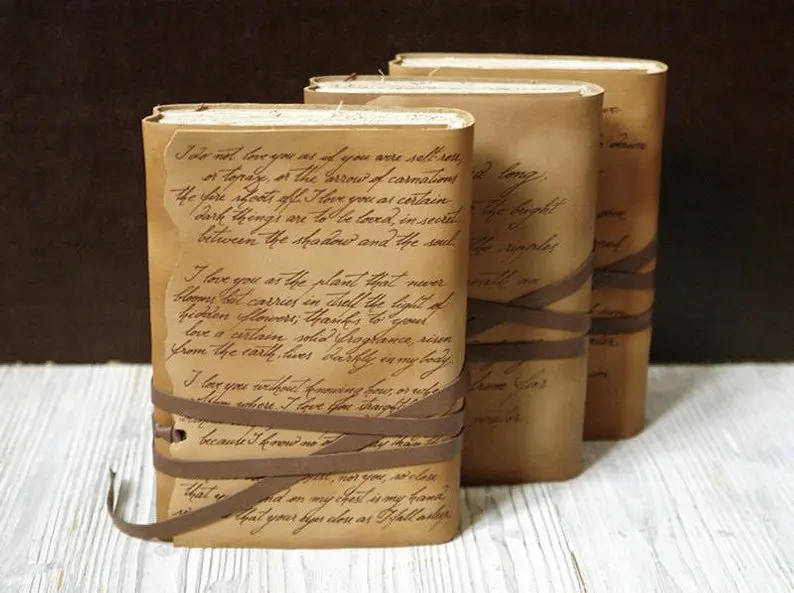 I do not love you as if you were salt-rose,
or topaz, or the arrow of carnations
the fire shoots off. I love you as certain
dark things are to be loved, in secret,
between the shadow and the soul.
I love you as the plant that never
blooms but carries in itself the light of
hidden flowers; thanks to your
love a certain solid fragrance, risen
from the earth, lives darkly in my body.
I love you without knowing how, or
where. I love you
because I know no
nor you, so close
that on my chest is my hand
that your eyes close as I fall asleep.
long,
the bright
the ripples
from far
down